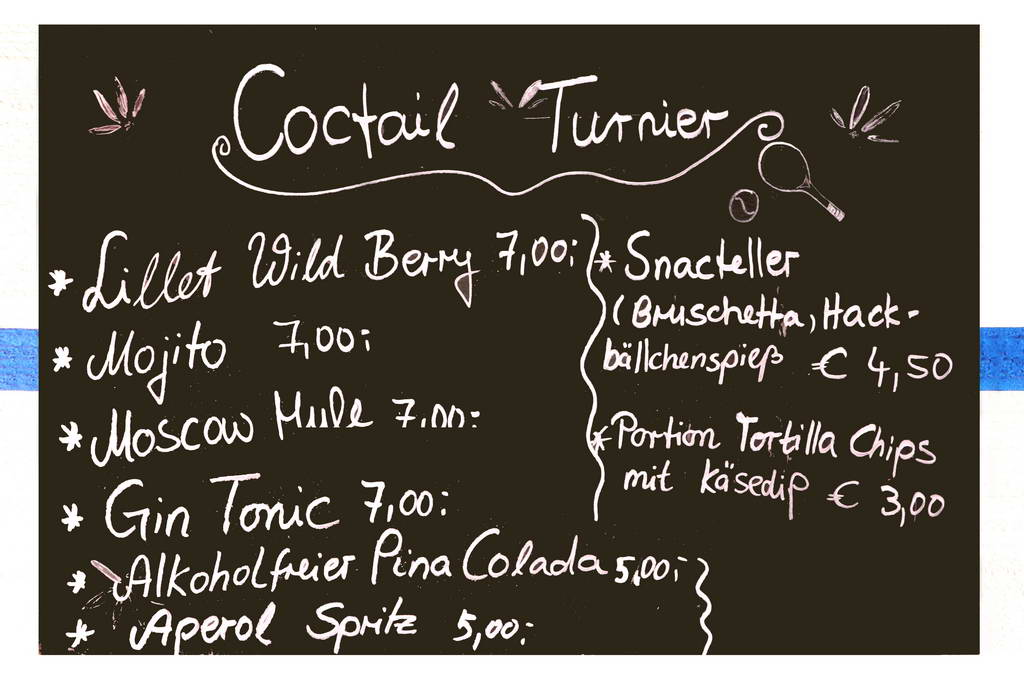 Coctail Turnier
* Lillet Wild Berry 7,00:
* Mojito 7,00:
* Moscow Mule 7,00:
* Gin Tonic 7,00:
* Alkoholfreier Pina Colada 5,00:
* Aperol Spritz 5,00:
* Snackteller
(Bruschetta, Hack-
bällchenspieß € 4,50
* Portion Tortilla Chips
mit Käsedip € 3,00